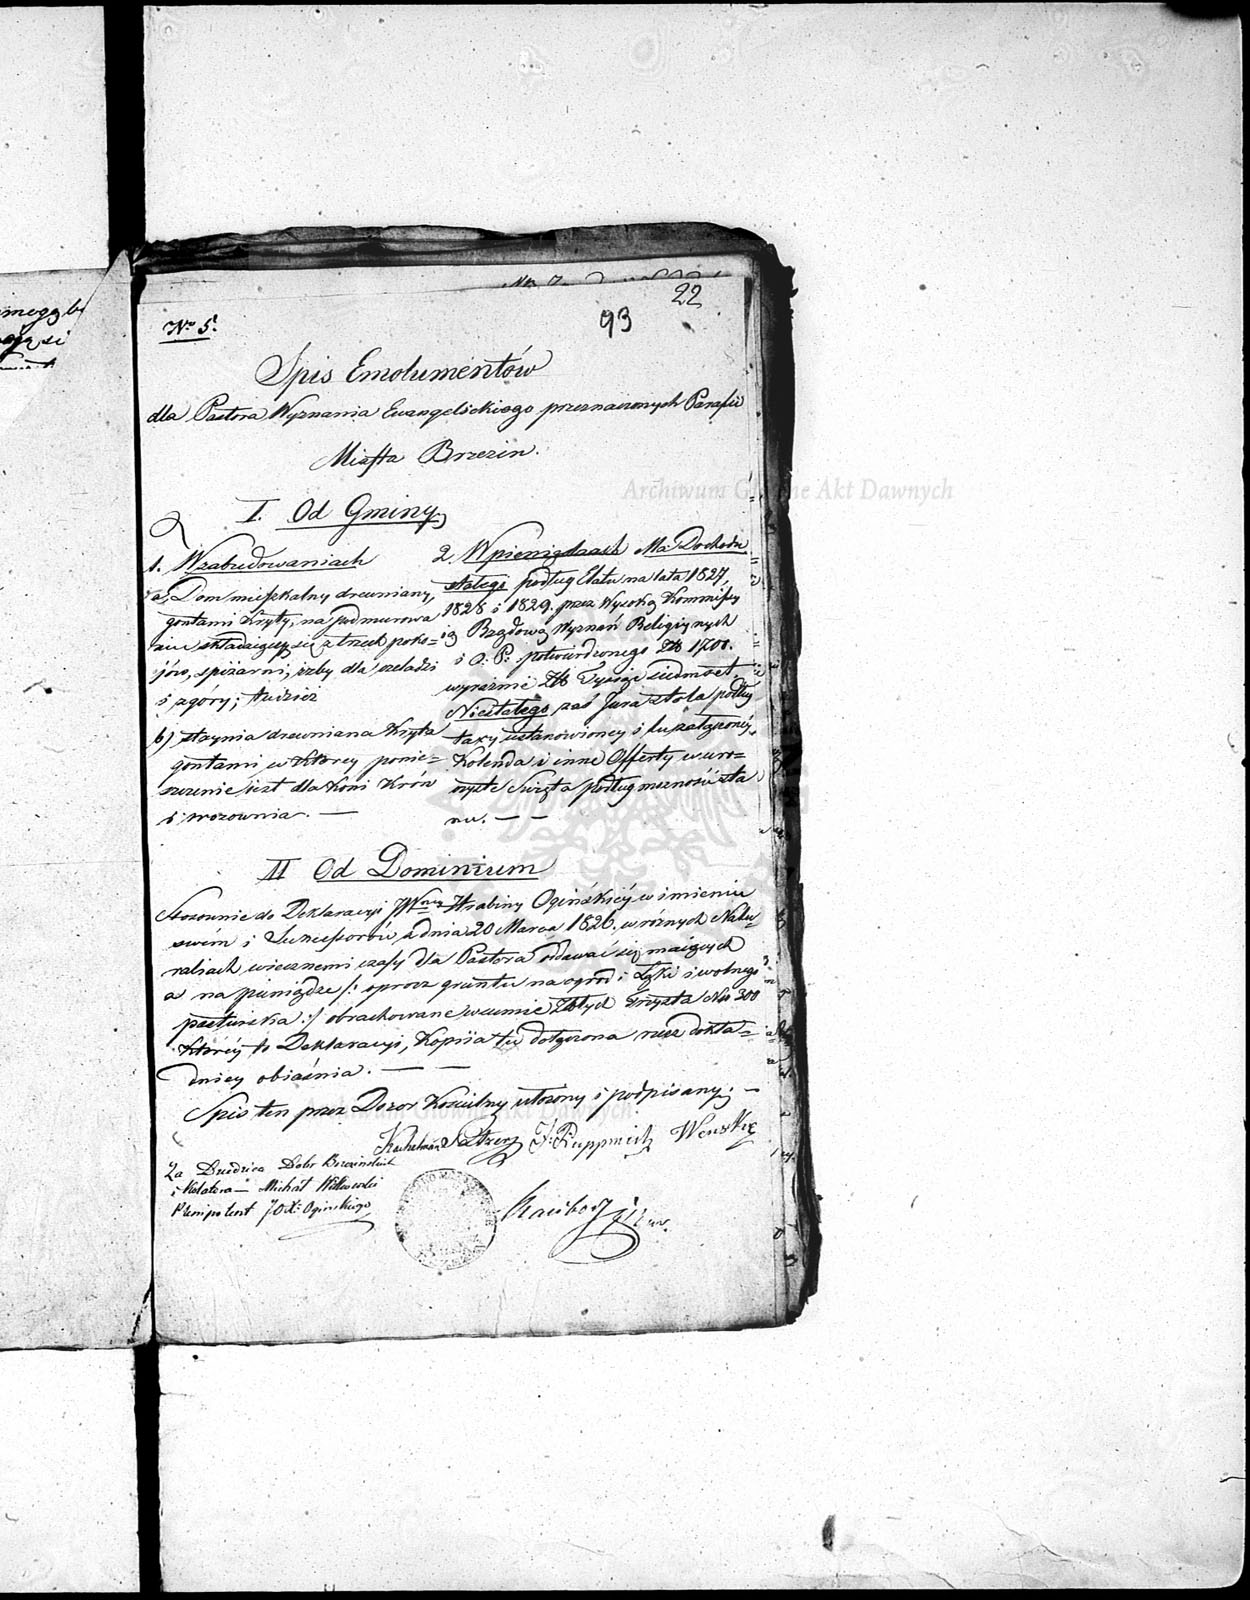 22
93
No 5.
Spis Emolumentów
dla Pastora Wyznania Ewangelickiego przeznaczonych Parafii
Miasta Brzezin.
I. Od Gminy
1. W zabudowaniach
a, Dom mieszkalny drewniany,
gontami kryty, na podmurowa
niu składaiący się z trzech poko=
jów, spiżarni, izby dla czeladzi
i zgóry; tudzież
b) stajnia drewniana kryta
gontami w którey pomie=
szczenie jest dla koni krów
i wozownia. —
2. W pieniądzach Ma Dochodu
stałego podług Etatu na lata 1827,
1828 i 1829. przez Wysoką Kommissy
ią Rządową Wyznań Religijnych
i O. P. potwierdzonego Zł 1700.
wyraźnie Zł Tysiąc siedmset.
Niestałego zaś Jura stola podług
taxy ustanowioney i tu załączoney
Kolenda i inne Offerty w uro=
czyste Święta podług możności sta
nu. — —
II Od Dominium
Stosownie do Deklaracyi JW Hrabiny Ogińskiéy w imieniu
swém i Sukcessorów z dnia 20 Marca 1826. w różnych Natu=
raliach wiecznemi czasy dla Pastora oddawać się maiących
a na pieniądze /: oprocz gruntu na ogród i Łąki i wolnego
pastwiska :/ obrachowane w summie Złtych Trzysta Nro 300
któréy to Deklaracyi, Kopiia tu dołączona rzecz dokła=
dniey obiaśnia. — —
Spis ten przez Dozor Kościelny ułożony i podpisany. —
Za Dziedzica Dobr Brzezińskich
i Kolatora — Michał Witkowski
Plenipotent JOX: Ogińskiego
Archiwum Główne Akt Dawnych
Archiwum Główne Akt Dawnych